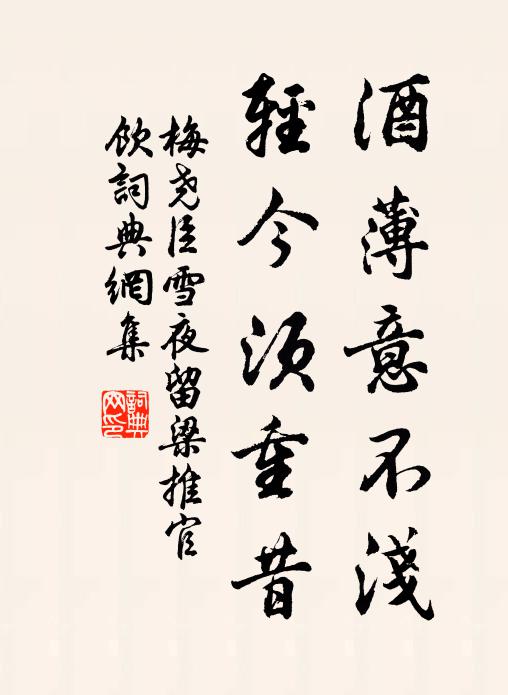 酒薄意不淺
輕今須重昔
梅堯臣雪夜留梁推官
飲詞典網集
詞典網印